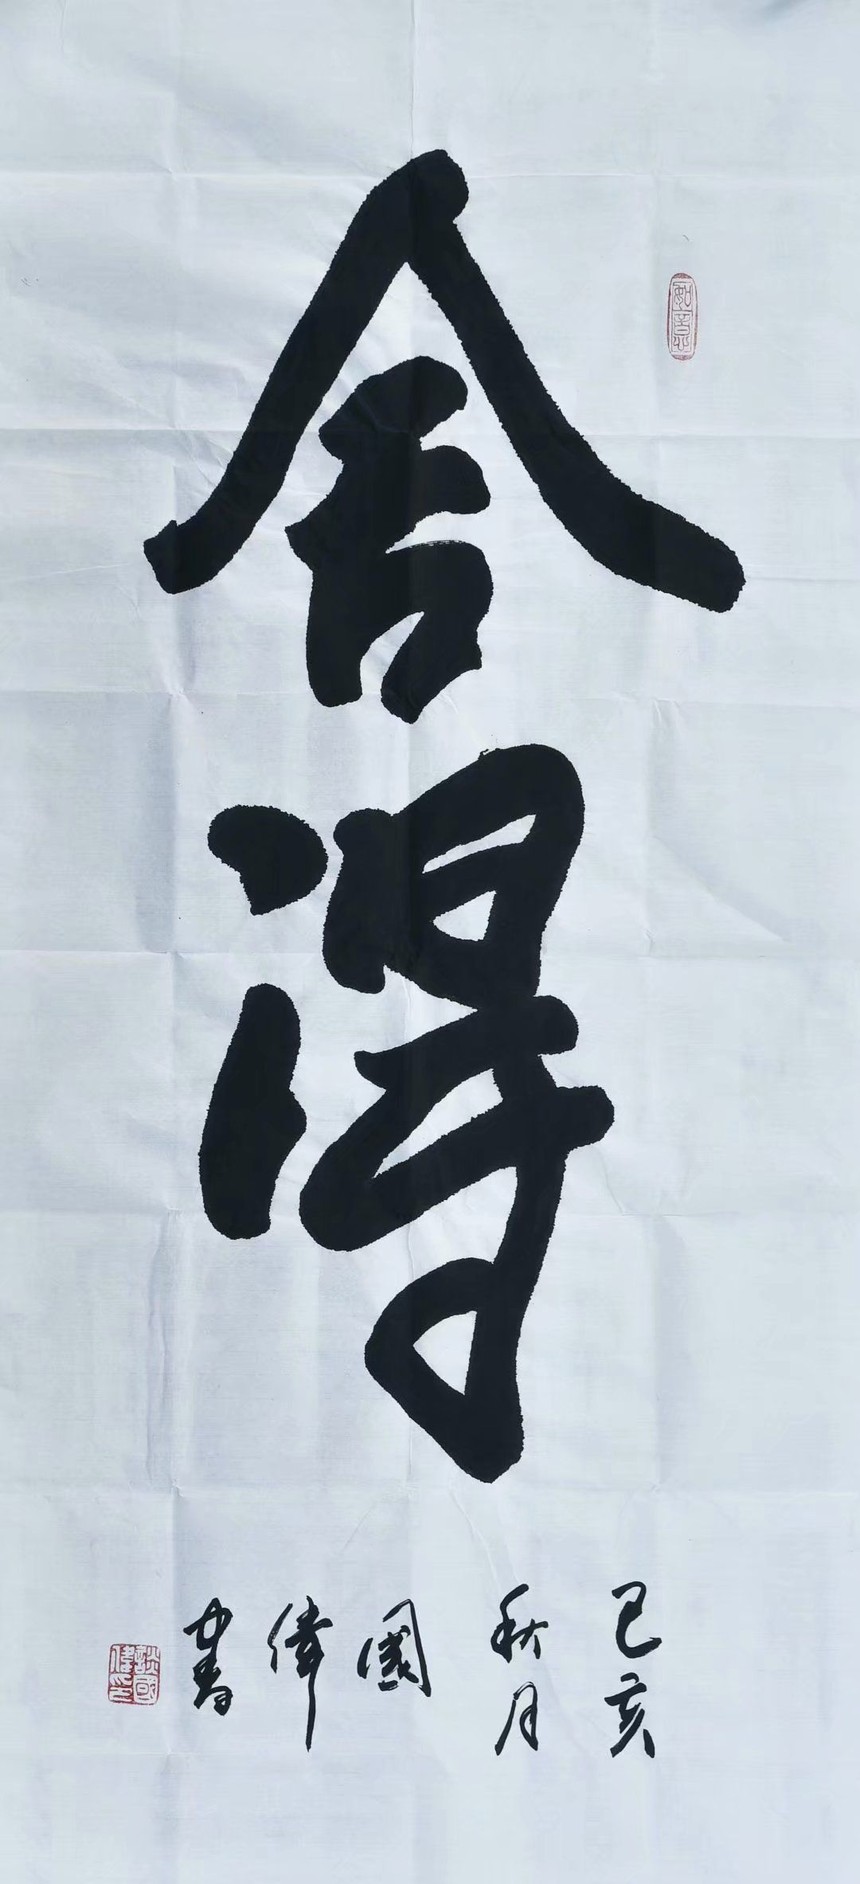 如意
舍得
己亥
秋月
國
偉
書